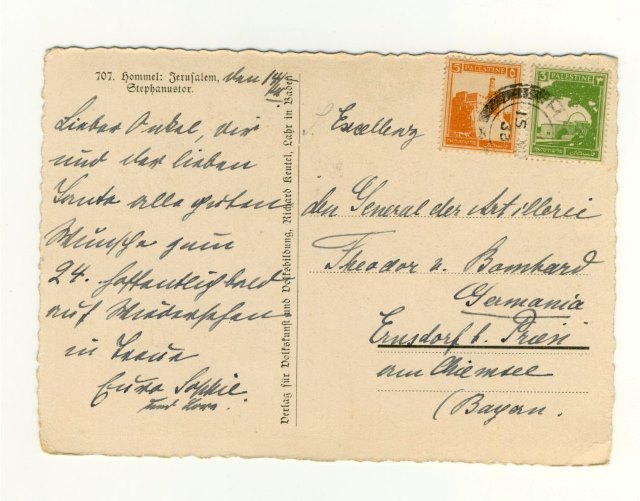 707. Hommel: Jerusalem, den 14/
Stephanustor.
Lieber Onkel, dir
und der lieben
Tante alle guten
Wünsche zum
24. hoffentlich bald
auf Wiedersehen
in Treue
Eure Sophie
und
Verlag für Volkskunst und Volksbildung, Richard Keutel, Lahr in Baden
5 PALESTINE
3 PALESTINE ٣
15
S. Excellenz
den General der Artillerie
Theodor v. Bomhard
Germania
Ernsdorf b. Prien
am Chiemsee
(Bayern.